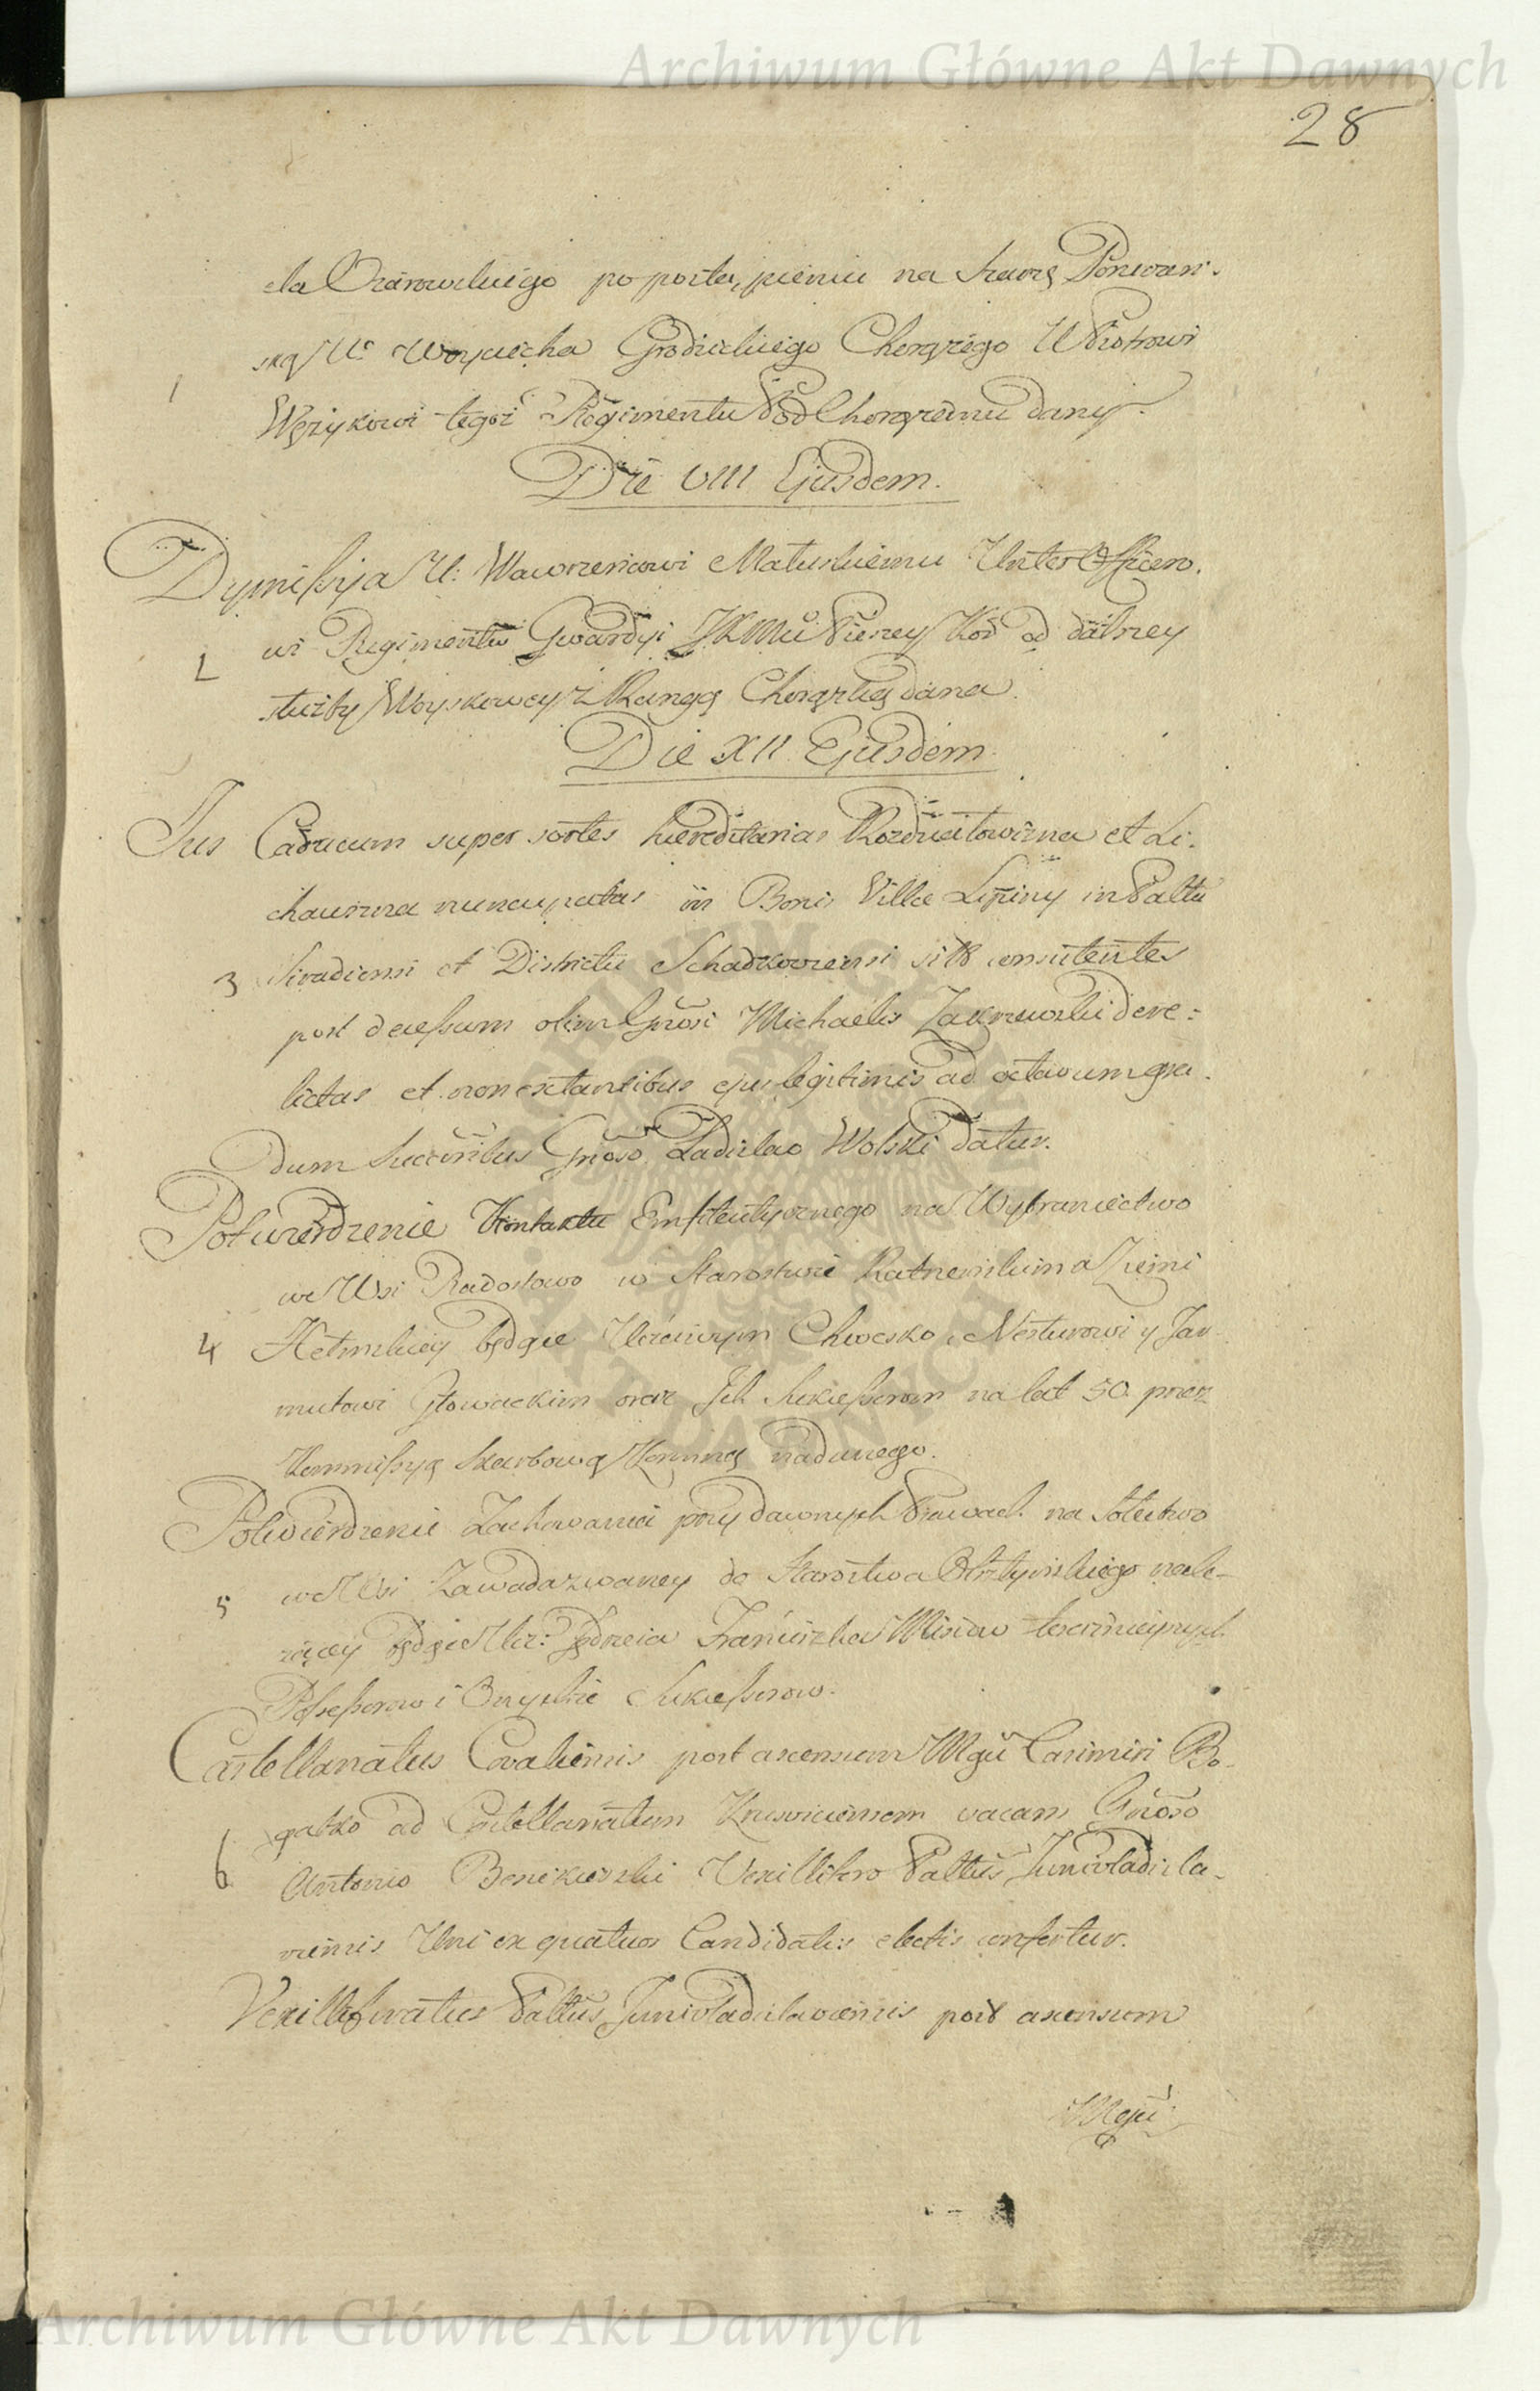 Archiwum Główne Akt Dawnych
28
ela Ożarowskiego po postąpieniu na
U: Woyciecha Grodzickiego Chorążego U Piotrowi
1
Wężykowi tegoż Regimentu PodChorążemu dany.
Die VIII Ejusdem.
Dymißyja U: Wawrzencowi Matuskiemu UnterOfficero.
wi Regimentu Gwardyi JKMci Pieszey Kor od dalszey
2
służby Woyskowey z Rangą Chorążką dana.
Die XII Ejusdem.
Jus Caducum super sortes hereditarias et Li.
nuncupatas in Bonis Villæ Lipiny in Paltu
3 Siradiensi et Districtu Schadkoviensi sitas consistentes
post deceßum olim Gnrosi Michaelis Zakrzewski dere=
lictas et non extantibus ejus legitimis ad octavum gra.
dum Succoribus Gnroso Ladislao Wolski datur.
Potwierdzenie Kontraktu Emfiteutycznego na Wybraniectwo
we Wsi Radostowo w Starostwie Ratneńskim a Ziemi
4 Chełmskiey będące Uczciwym Chwesko, Nesturowi y Jar
mutowi Głowackim oraz Ich Sukceßorom na lat 50. przez
Kommißyą Skarbową Koronną nadanego.
Potwierdzenie Zachowania przy dawnych Prawach na Sołectwo
5 we Wsi Zawada zwaney do Starostwa Olsztyńskiego nale-
żącey będące Ucz: Jędrzeia Franciszka Misiów teraznieyszych
Poßeßorow i Onychże Sukceßorow.
Castellanatus Covaliensis post ascensum Mgci Casimiri Bo-
gatko ad Castellanatum Krusviciensem vacans Gnroso
6 Antonio Bieńkowski Vexillifero Paltus Junivladisla-
viensis Uni ex quatuor Candidatis electis confertur.
Vexilliferatus Paltus Junivladislaviensis post ascensum
Mgci
Archiwum Główne Akt Dawnych